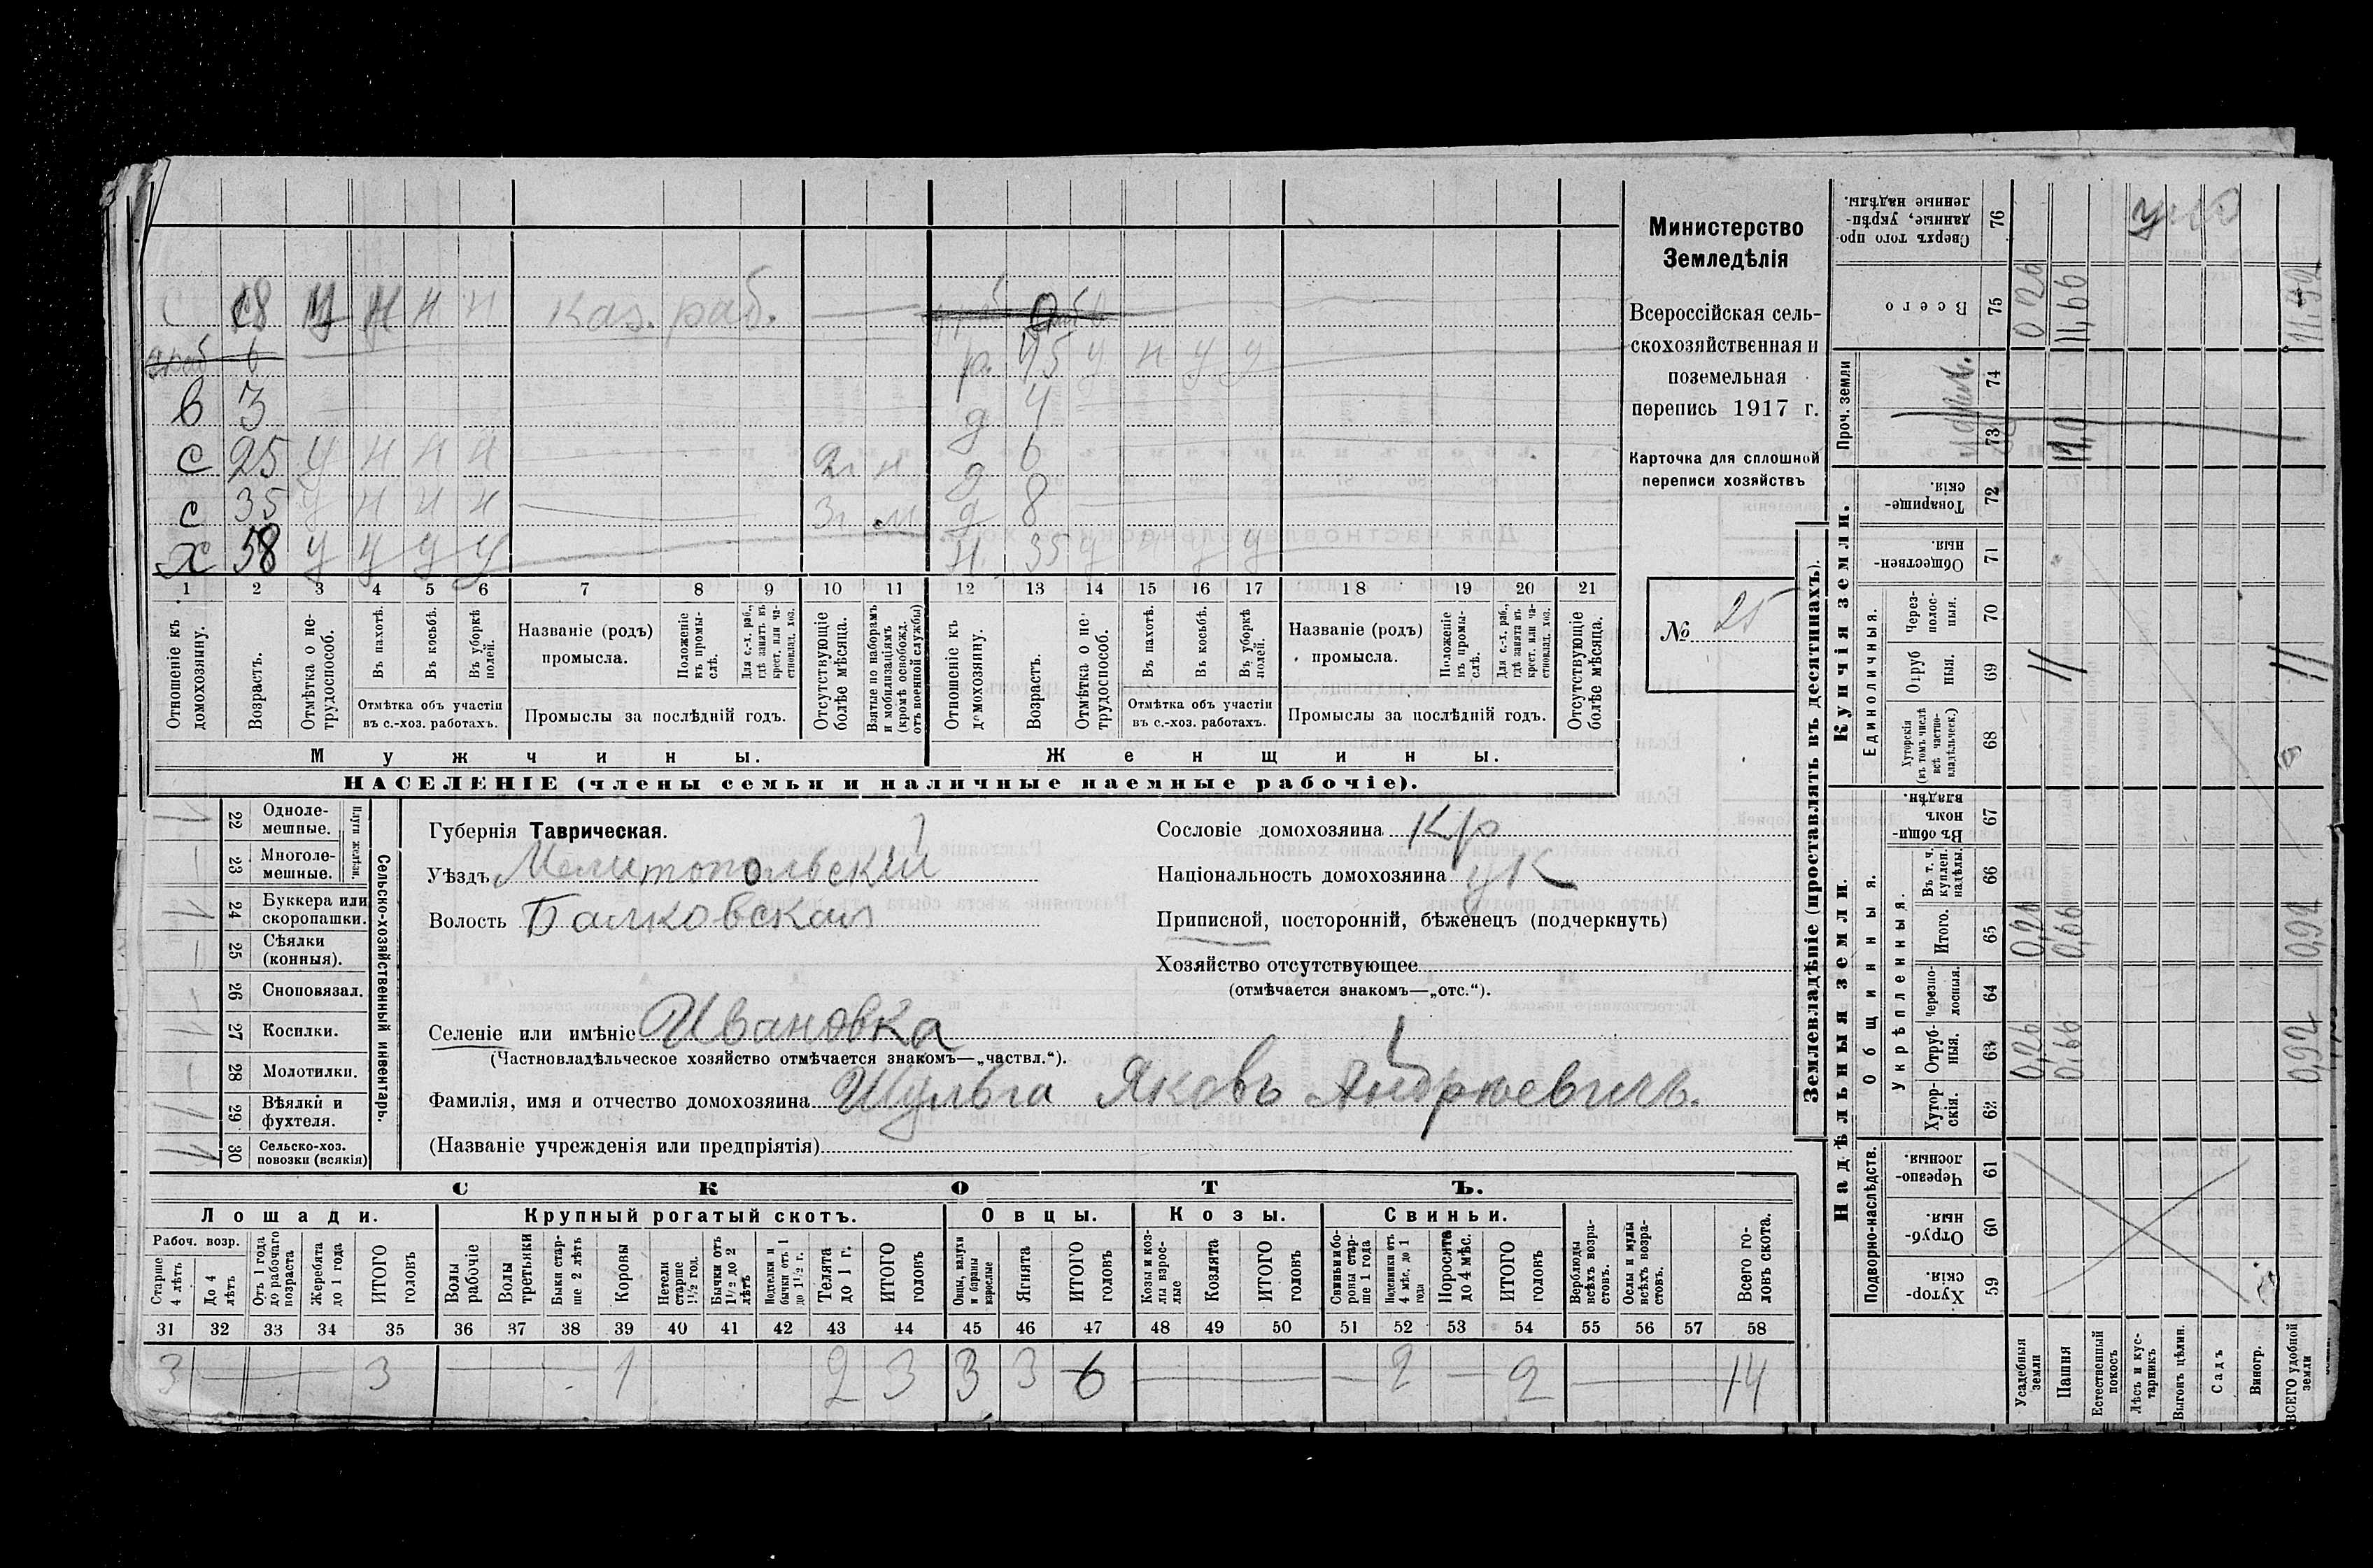 с 18 н н н каз. раб.
р. 45 у н у у
в 3 д 4
с 25 у н н н 2г н д 6
с 35 у н н н 3г д 8
х 58 у у у у н. 35 у н у у
1 2 3 4 5 6 7 8 9 10 11 12 13 14 15 16 17 18 19 20 21
Отношеніе къ домохозяину.
Возрастъ.
Отмѣтка о нетрудоспособ.
Въ пахотѣ.
Въ косьбѣ.
Въ уборкѣ полей.
Отмѣтка объ участіи въ с.-хоз. работахъ.
Названіе (родъ) промысла.
Положеніе въ промыслѣ.
Для с.-х. раб., гдѣ занятъ въ крест. или частновлад. хоз.
Промыслы за послѣдній годъ.
Отсутствующіе болѣе мѣсяца.
Взятые по наборамъ и мобилизаціямъ (кромѣ освобожд. отъ военной службы)
Отношеніе къ домохозяину.
Возрастъ.
Отмѣтка о нетрудоспособ.
Въ пахотѣ.
Въ косьбѣ.
Въ уборкѣ полей.
Отмѣтка объ участіи въ с.-хоз. работахъ.
Названіе (родъ) промысла.
Положеніе въ промыслѣ.
Для с.-х. раб., гдѣ занята въ крест. или частновлад. хоз.
Промыслы за послѣдній годъ.
Отсутствующіе болѣе мѣсяца.
Мужчины. Женщины.
НАСЕЛЕНІЕ (члены семьи и наличные наемные рабочіе).
Министерство
Земледѣлія
Всероссійская сель-
скохозяйственная и
поземельная
перепись 1917 г.
Карточка для сплошной
переписи хозяйствъ
№ 25
22 Одноле-
мешные.
23 Многоле-
мешные.
Плуги желѣзн.
24 Буккера или
скоропашки.
25 Сѣялки
(конныя).
26 Сноповязал.
27 Косилки.
28 Молотилки.
29 Вѣялки и
фухтеля.
30 Сельско-хоз.
повозки (всякія)
Сельско-хозяйственный инвентарь.
Губернія Таврическая.
Уѣздъ Мелитопольскій
Волость Балковская
Селеніе или имѣніе Ивановка
(Частновладѣльческое хозяйство отмѣчается знакомъ—„частвл.“).
Фамилія, имя и отчество домохозяина Шульга Яковъ Андреевичъ.
(Названіе учрежденія или предпріятія)
Сословіе домохозяина кр
Національность домохозяина ук
Приписной, посторонній, бѣженецъ (подчеркнуть)
Хозяйство отсутствующее
(отмѣчается знакомъ—„отс.“).
СКОТЪ.
Лошади. Крупный рогатый скотъ. Овцы. Козы. Свиньи.
Рабоч. возр.
Старше 4 лѣтъ
До 4 лѣтъ
Отъ 1 года до рабочаго возраста
Жеребята до 1 года
ИТОГО головъ
Волы рабочіе
Волы третьяки
Быки старше 2 лѣтъ
Коровы
Нетели старше 1½ год.
Бычки отъ 1½ до 2 лѣтъ
Подтелки и бычки отъ 1 до 1½ г.
Телята до 1 г.
ИТОГО головъ
Овцы, валухи и бараны взрослые
Ягнята
ИТОГО головъ
Козы и козлы взрослые
Козлята
ИТОГО головъ
Свиньи и боровы старше 1 года
Подсвинки отъ 4 мѣс. до 1 года
Поросята до 4 мѣс.
ИТОГО головъ
Верблюды всѣхъ возрастовъ.
Ослы и мулы всѣхъ возрастовъ.
Всего головъ скота.
31 32 33 34 35 36 37 38 39 40 41 42 43 44 45 46 47 48 49 50 51 52 53 54 55 56 57 58
3 — 3 — 1 2 3 3 3 6 — — 2 — 2 — 14
Землевладѣніе (проставлять въ десятинахъ).
Надѣльныя земли. Купчія земли.
Подворно-наслѣдств.
Общинныя.
Укрѣпленныя.
Единоличныя.
Проч. земли
Хуторскія. 59
Отрубныя 60
Черезполосныя. 61
Хуторскія. 62
Отрубныя. 63
Черезполосныя. 64
Итого. 65
Въ т. ч. куплен. надѣлы. 66
Въ общинномъ владѣн. 67
Хуторскія (въ томъ числѣ всѣ частновладѣльческ.) 68
Отрубныя. 69
Черезполосныя. 70
Общественныя. 71
Товарищескія. 72
73
74
Всего 75
Сверхъ того проданные, укрѣпленные надѣлы. 76
Усадебныя земли 0,26 0,26 0 26
Пашня 0,66 0,66 11 11,66
Естественный покосъ
Лѣсъ и кустарникъ
Выгонъ цѣлин.
Садъ
Виногр.
ВСЕГО удобной земли 0,92 0,92 11 11.92